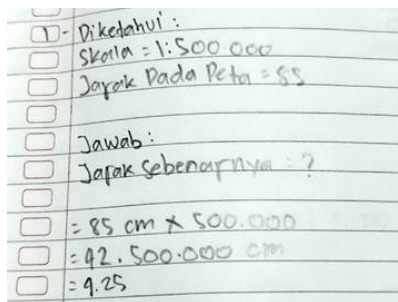 1 - Diketahui :
Skala = 1:500.000
Jarak Pada Peta = 85
Jawab :
Jarak Sebenarnya = ?
= 85 cm x 500.000
= 42.500.000 cm
= 4.25